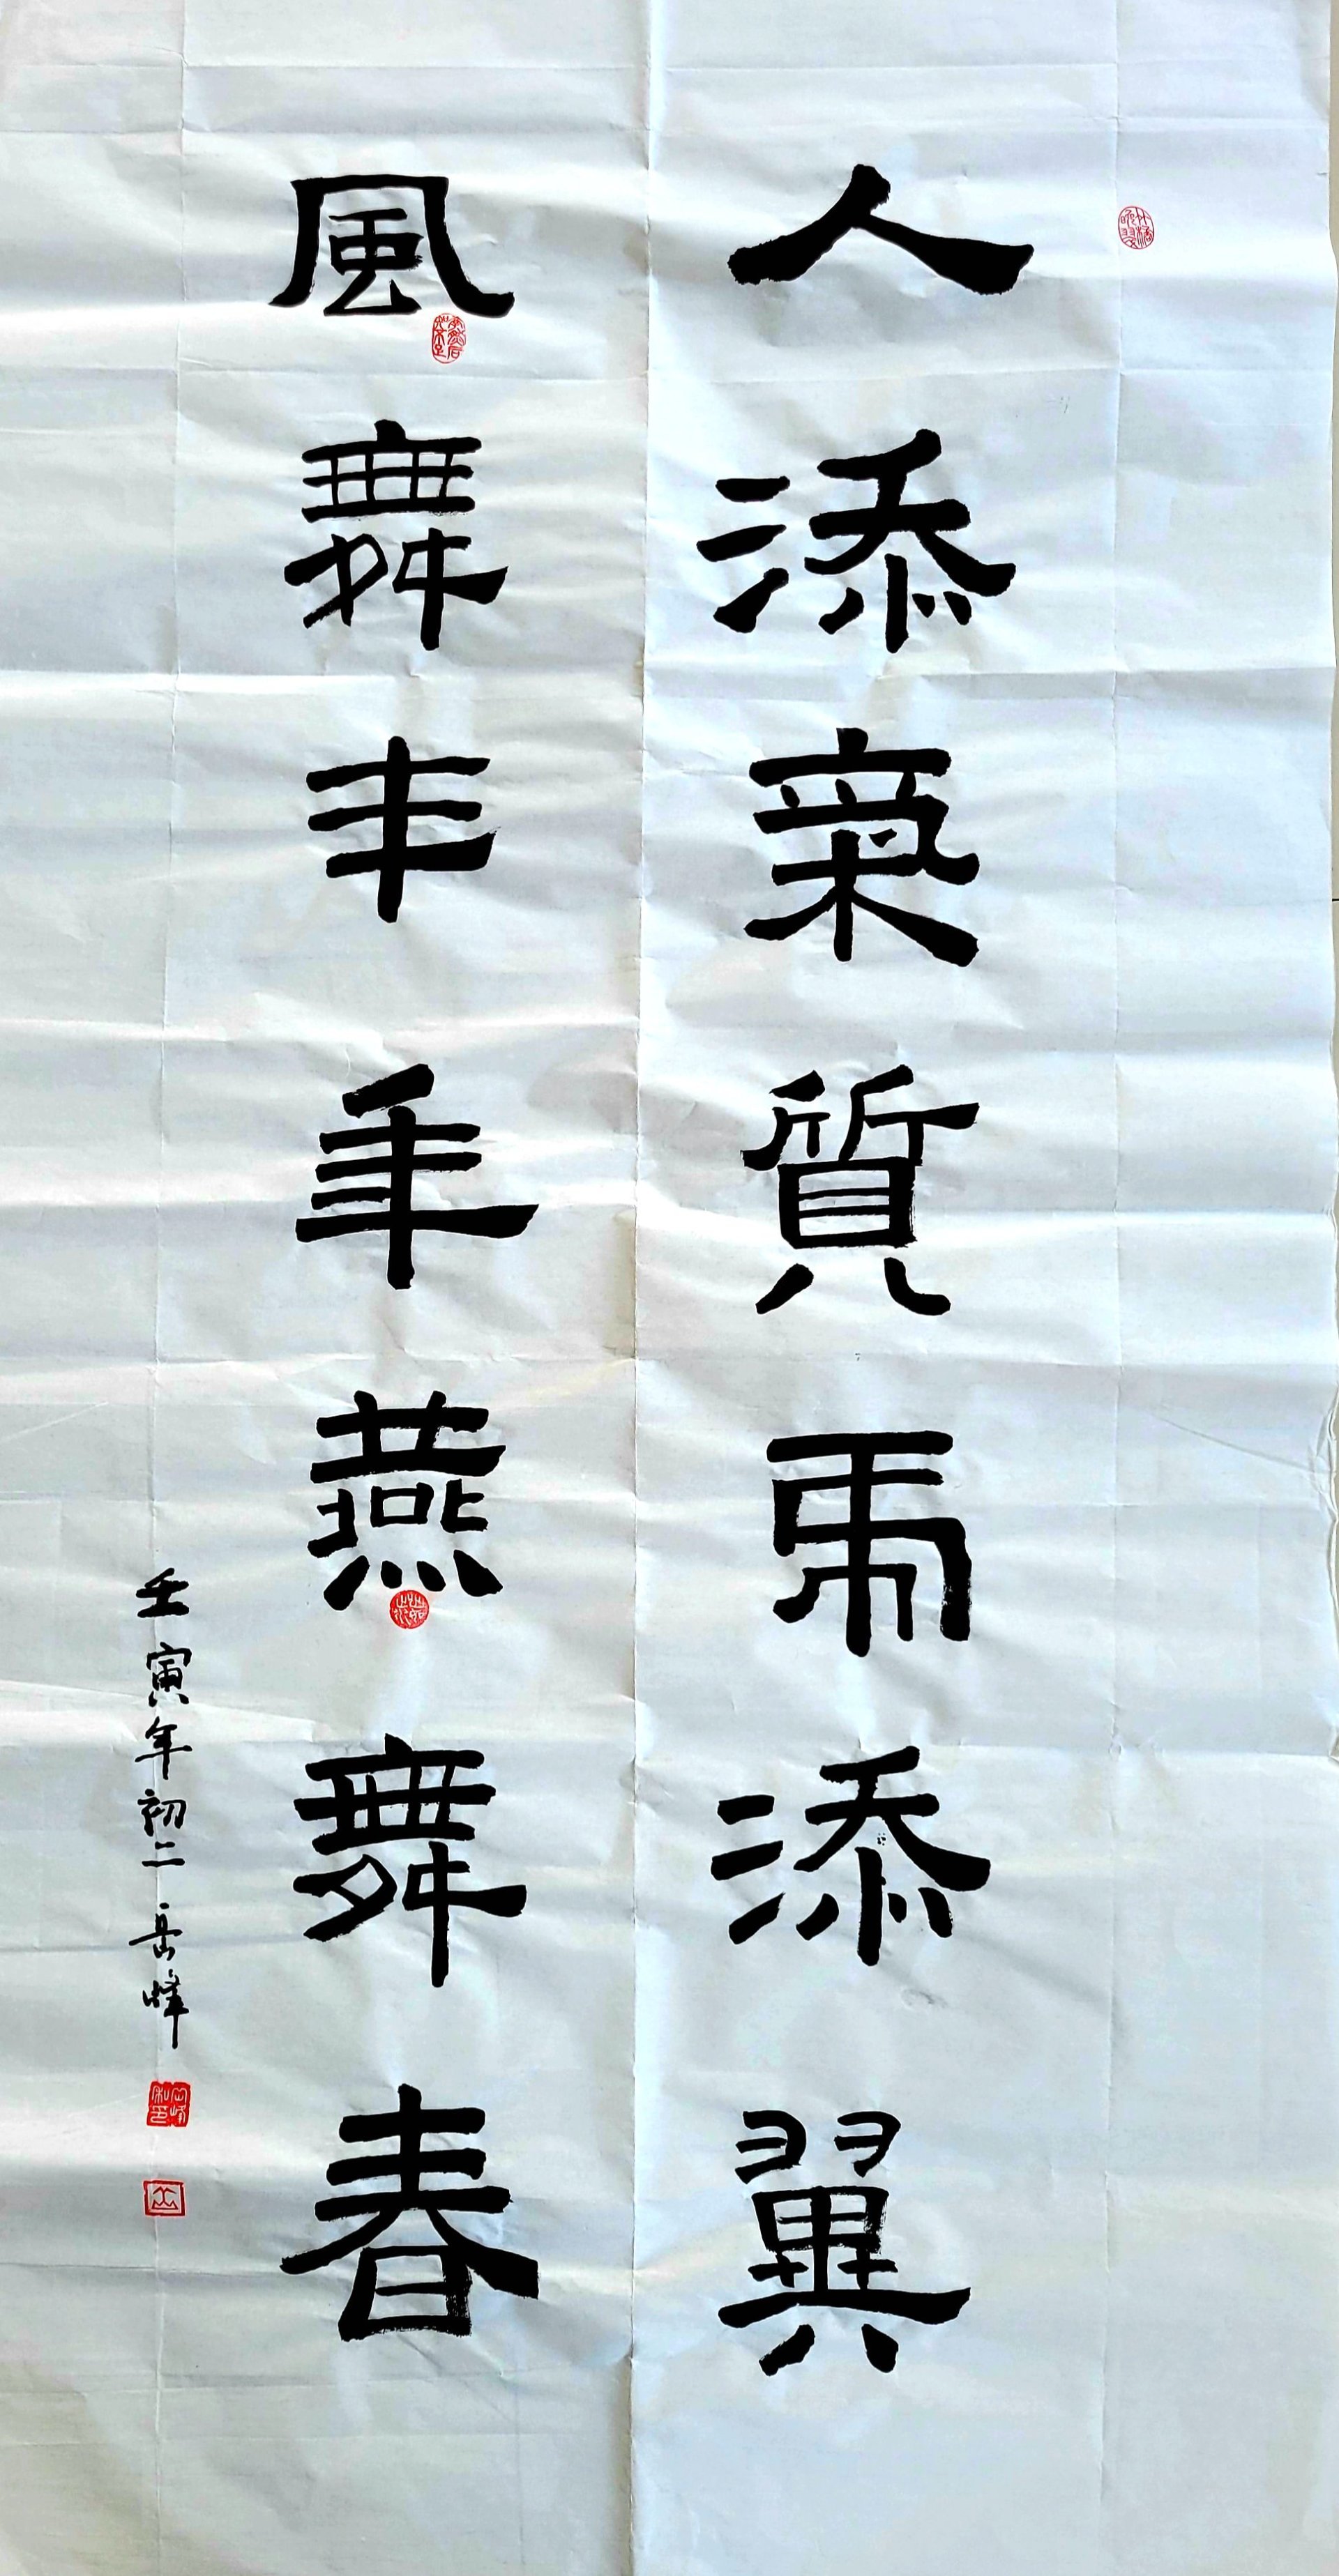 人添氣質虎添翼
風舞丰年燕舞春
壬寅年初二岳峰